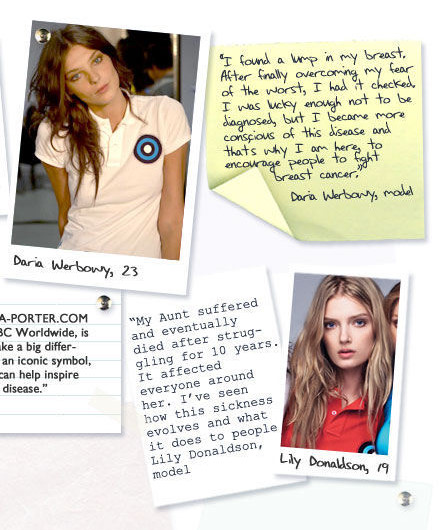 "I found a lump in my breast.
After finally overcoming my fear
of the worst, I had it checked.
I was lucky enough not to be
diagnosed, but I became more
conscious of this disease and
thats why I am here, to
encourage people to fight
breast cancer."
Daria Werbowy, model
Daria Werbowy, 23
A-PORTER.COM
BC Worldwide, is
ake a big differ-
an iconic symbol,
can help inspire
disease."
"My Aunt suffered
and eventually
died after strug-
gling for 10 years.
It affected
everyone around
her. I've seen
how this sickness
evolves and what
it does to people
Lily Donaldson,
model
Lily Donaldson, 19